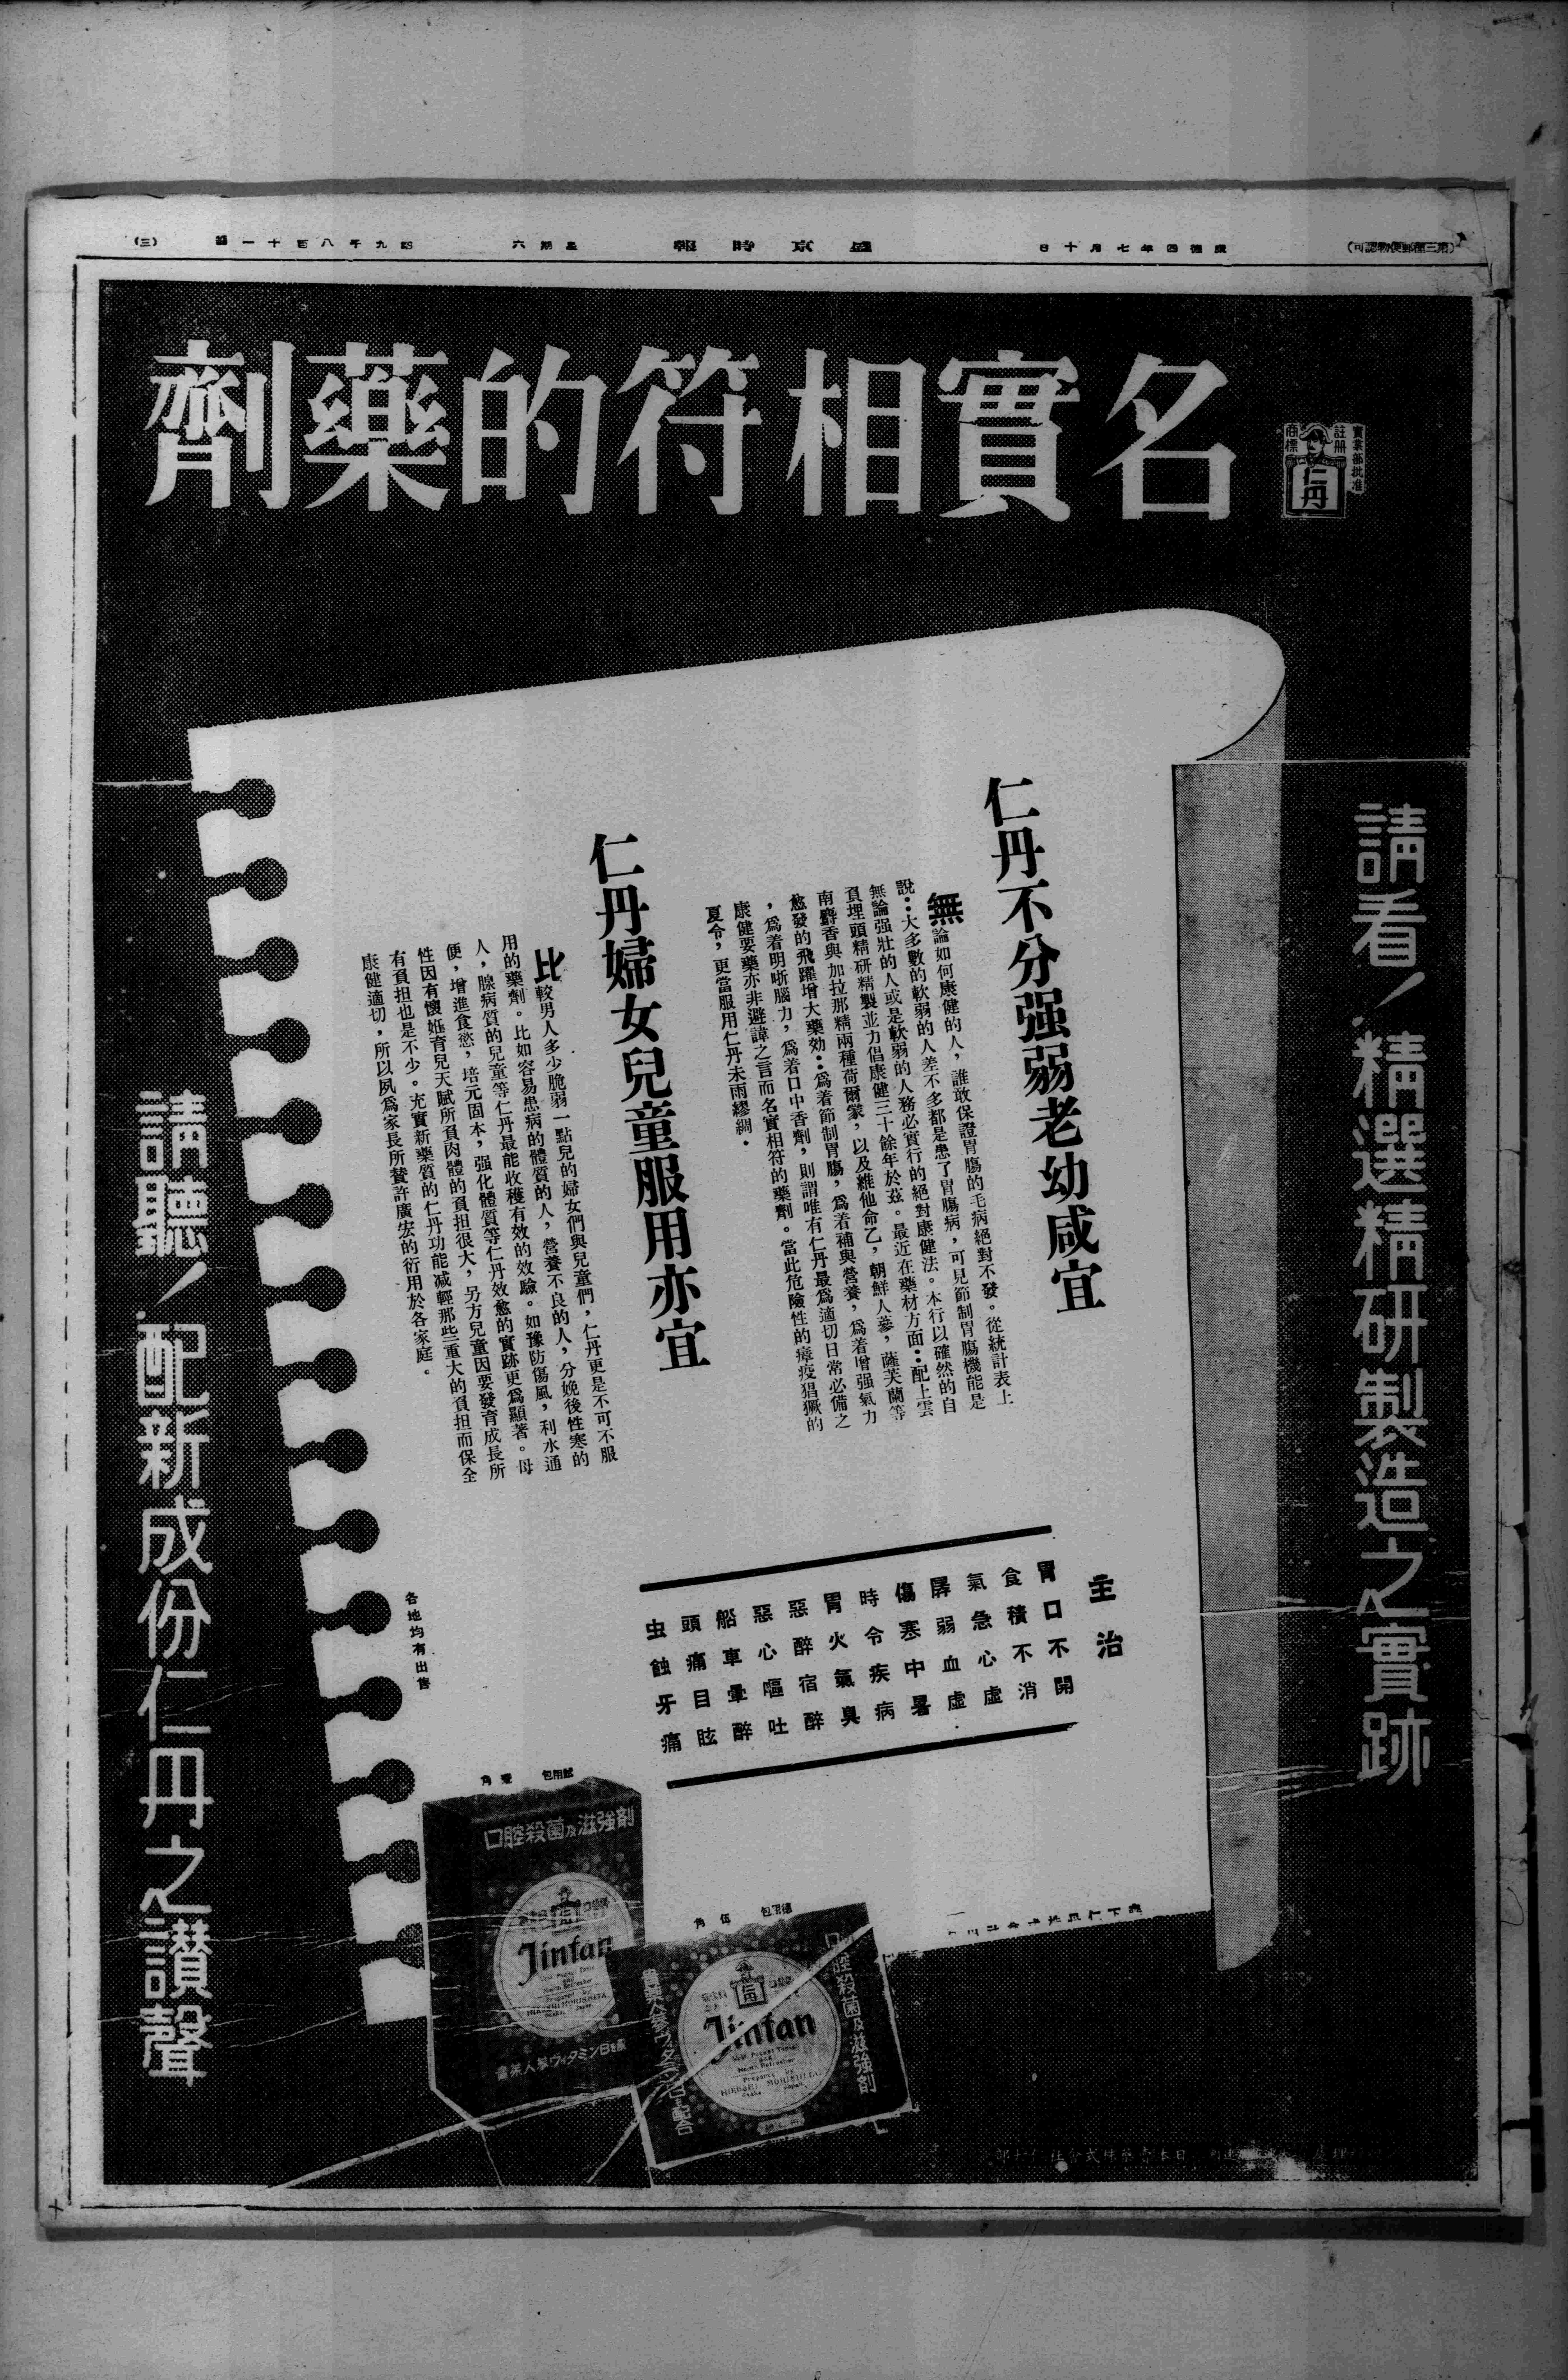 (第三種郵便物認可)
康德四年七月十日
盛京時報
星期六
第九千八百十一號
(三)
名實相符的藥劑
實業部批准
註冊
商標
仁丹
請看！精選精研製造之實跡
仁丹不分强弱老幼咸宜
無論如何康健的人，誰敢保證胃腸的毛病絕對不發。從統計表上
說：大多數的軟弱的人差不多都是患了胃腸病，可見節制胃腸機能是
無論强壯的人或是軟弱的人務必實行的絕對康健法。本行以確然的自
負埋頭精研精製並力倡康健三十餘年於茲。最近在藥材方面：配上雲
南麝香與加拉那精兩種荷爾蒙，以及維他命乙，朝鮮人蔘，薩芙蘭等
愈發的飛躍增大藥効：爲着節制胃腸，爲着補與營養，爲着增强氣力
，爲着明晰腦力，爲着口中香劑，則謂唯有仁丹最爲適切日常必備之
康健要藥亦非避諱之言而名實相符的藥劑。當此危險性的瘴疫猖獗的
夏令，更當服用仁丹未雨繆綢．
仁丹婦女兒童服用亦宜
比較男人多少脆弱一點兒的婦女們與兒童們，仁丹更是不可不服
用的藥劑。比如容易患病的體質的人，營養不良的人，分娩後性寒的
人，腺病質的兒童等仁丹最能收穫有效的效驗。如豫防傷風，利水通
便，增進食慾，培元固本，强化體質等仁丹效愈的實跡更爲顯著。母
性因有懷姙育兒天賦所負肉體的負担很大，另方兒童因要發育成長所
有負担也是不少。充實新藥質的仁丹功能减輕那些重大的負担而保全
康健適切，所以夙爲家長所賛許廣宏的衍用於各家庭。
主治
胃口不開
食積不消
氣急心虛
孱弱血虛
傷寒中暑
時令疾病
胃火氣臭
惡醉宿醉
惡心嘔吐
船車暈醉
頭痛目眩
虫蝕牙痛
各地均有出售
請聽！配新成份仁丹之讚聲
試用包 壹角
口腔殺菌及滋強剤
Jintan
Prepared by
HIROSHI MORISHITA
Osaka Japan
德用包 伍角
口腔殺菌及滋強剤
Jintan
Best Pocket Tonic
and
Mouth Refresher
Prepared by
HIROSHI MORISHITA
Osaka Japan